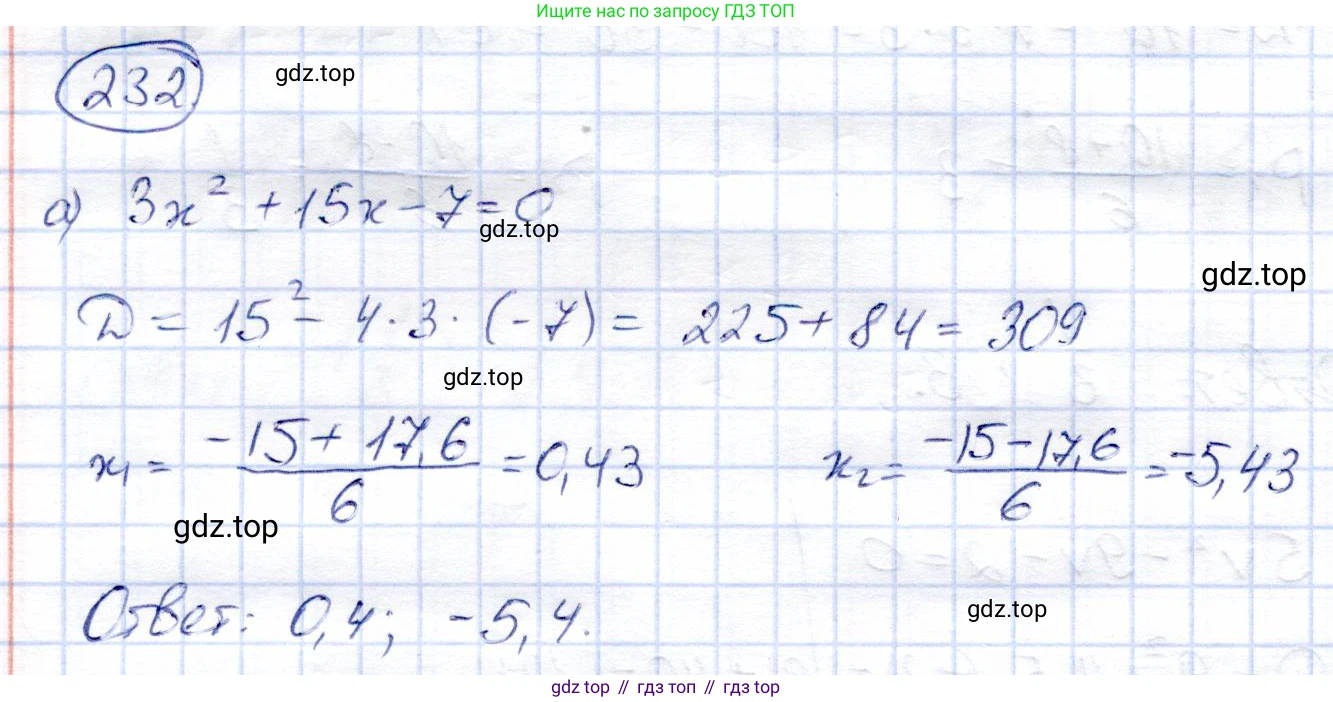 Ищите нас по запросу ГДЗ ТОП
232
gdz.top
а) 3x² + 15x - 7 = 0
gdz.top
gdz.top
D = 15² - 4 · 3 · (-7) = 225 + 84 = 309
gdz.top
x₁ = (-15 + 17,6)/6 = 0,43 x₂ = (-15 - 17,6)/6 = -5,43
gdz.top
Ответ: 0,4; -5,4.
gdz.top
gdz top // гдз топ // gdz top